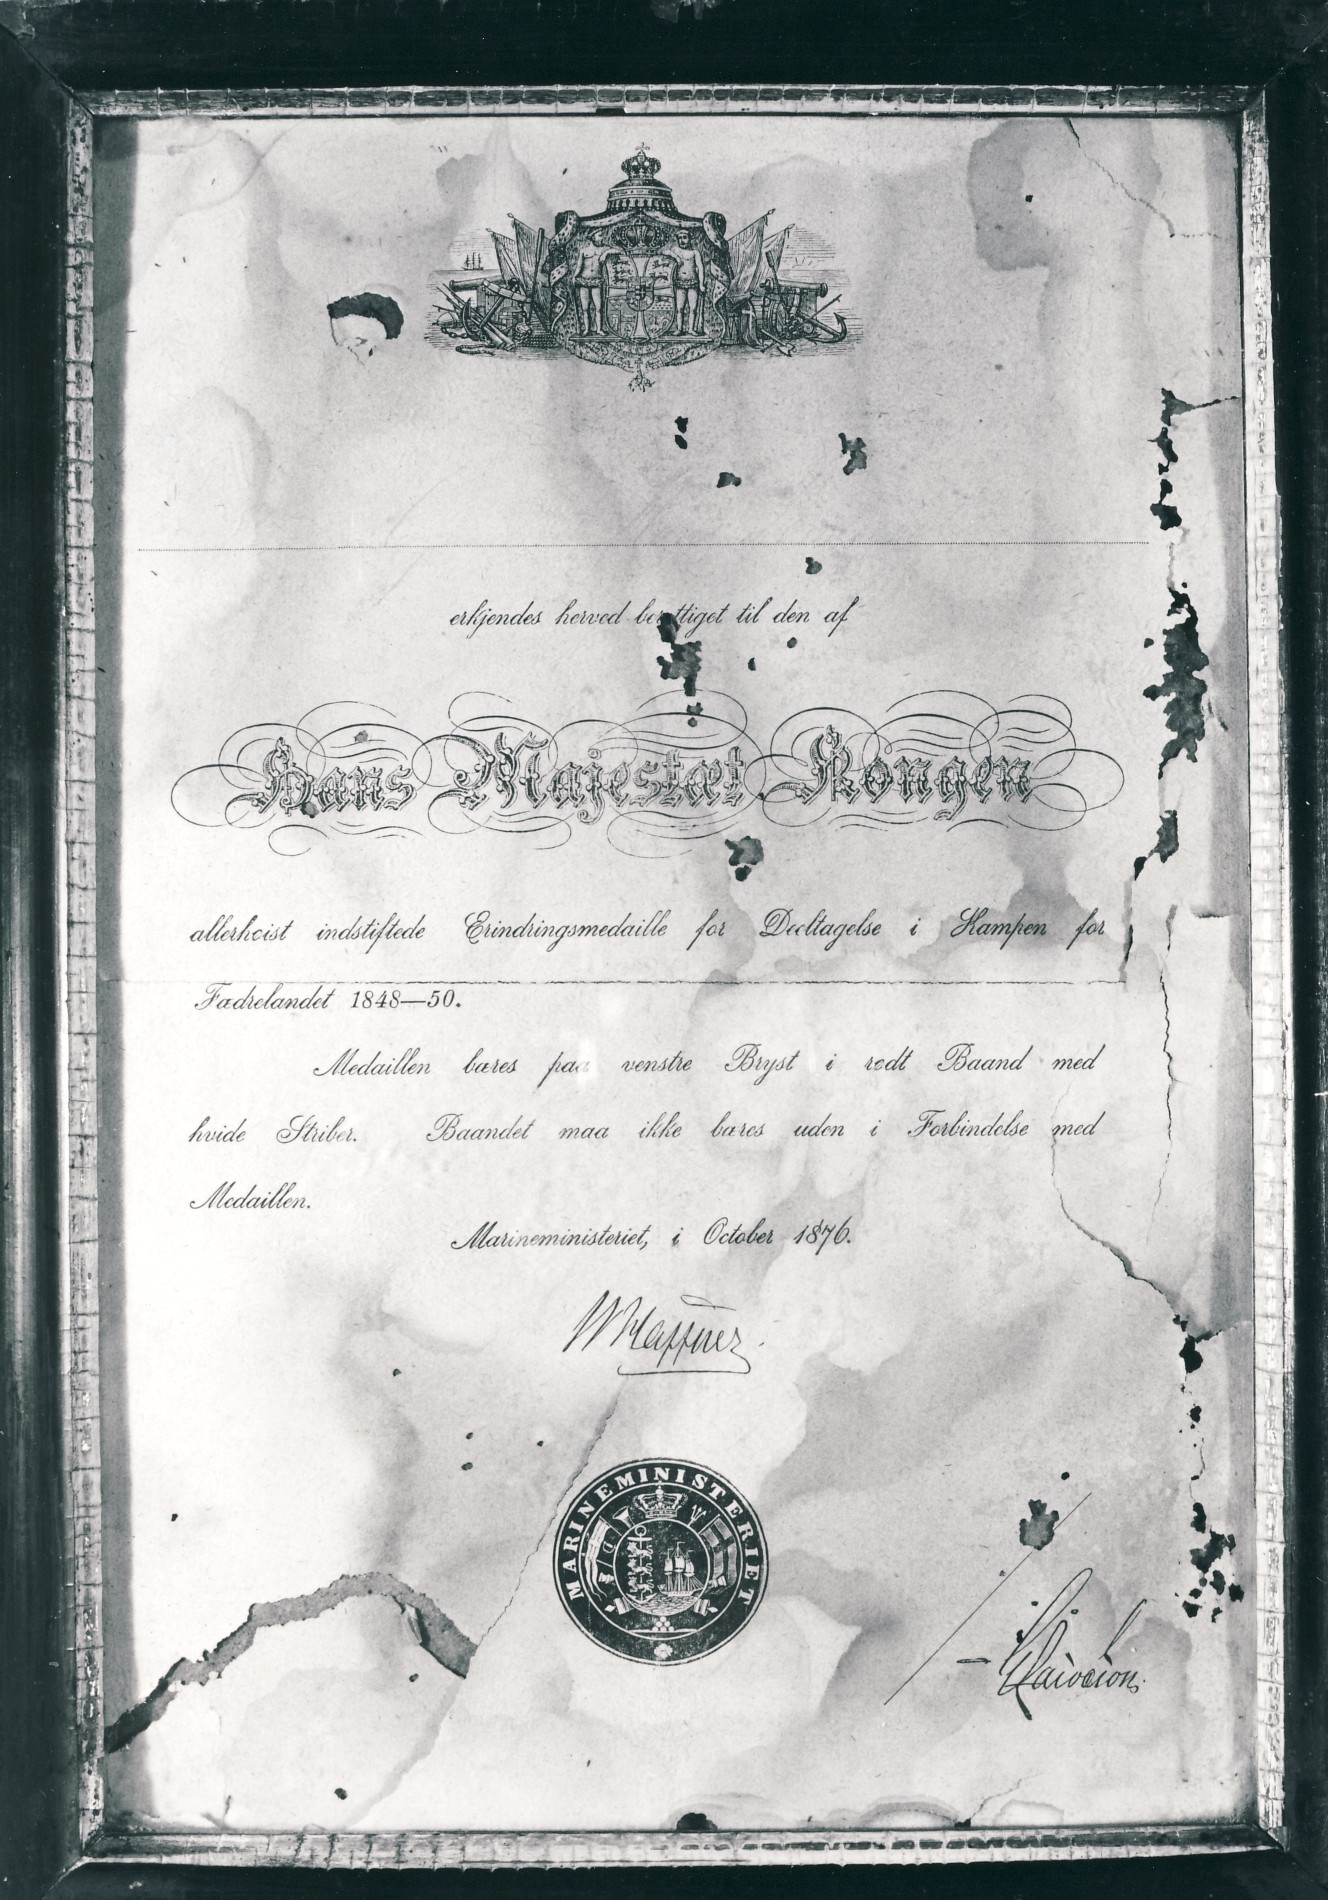 erkjendes herved berettiget til den af
Hans Majestæt Kongen
allerhøist indstiftede Erindringsmedaille for Deeltagelse i Kampen for
Fædrelandet 1848—50.
Medaillen bæres paa venstre Bryst i rødt Baand med
hvide Striber. Baandet maa ikke bæres uden i Forbindelse med
Medaillen.
Marineministeriet, i October 1876.
W Haffner
MARINEMINISTERIET